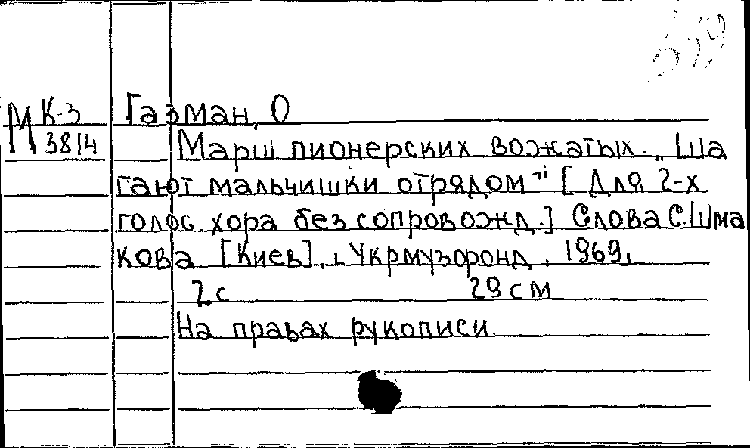 МК-3
3814
Газман, О
Марш пионерских вожатых. „Ша
гают мальчишки отрядом" [Для 2-х
голос. хора без сопровожд.] Слова С. Шма
кова [Киев], „Укрмузфонд, 1969,
2 с 29 см
На правах рукописи